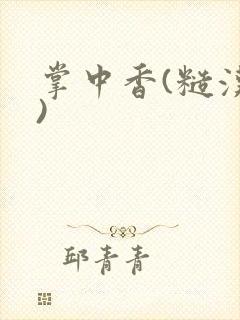 掌中香(糙汉
)
邱青青